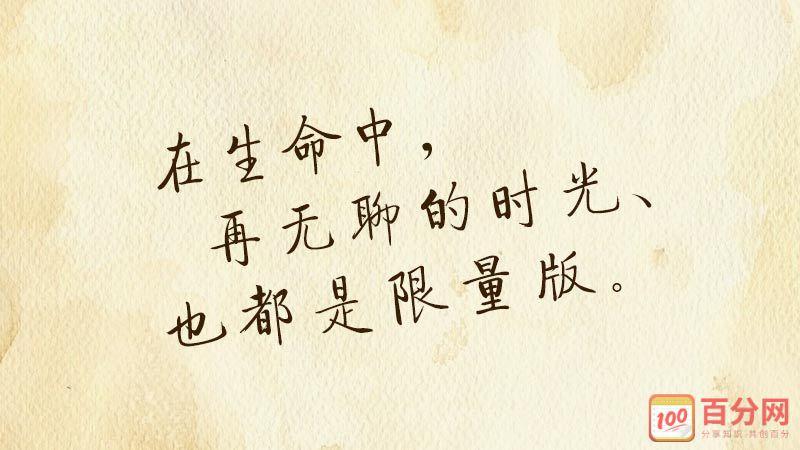 在生命中，
再无聊的时光、
也都是限量版。
100 百分网
分享知识 共创百分